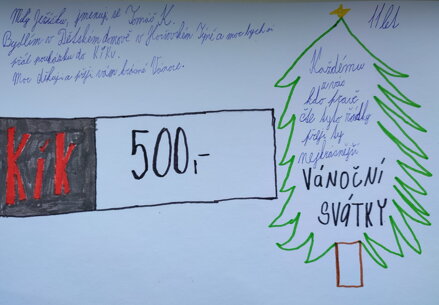 Milý Ježíšku, jmenuji se Tomáš K.
Bydlím v Dětském domově v Horšovském Týně a moc bych si
přál poukázku do KIKu.
Moc děkuji a přeji vám krásné Vánoce.
11 let
Kik
500,-
Každému
z vás
kdo právě
čte tyto řádky
přeji ty
nejkrásnější
VÁNOČNÍ
SVÁTKY